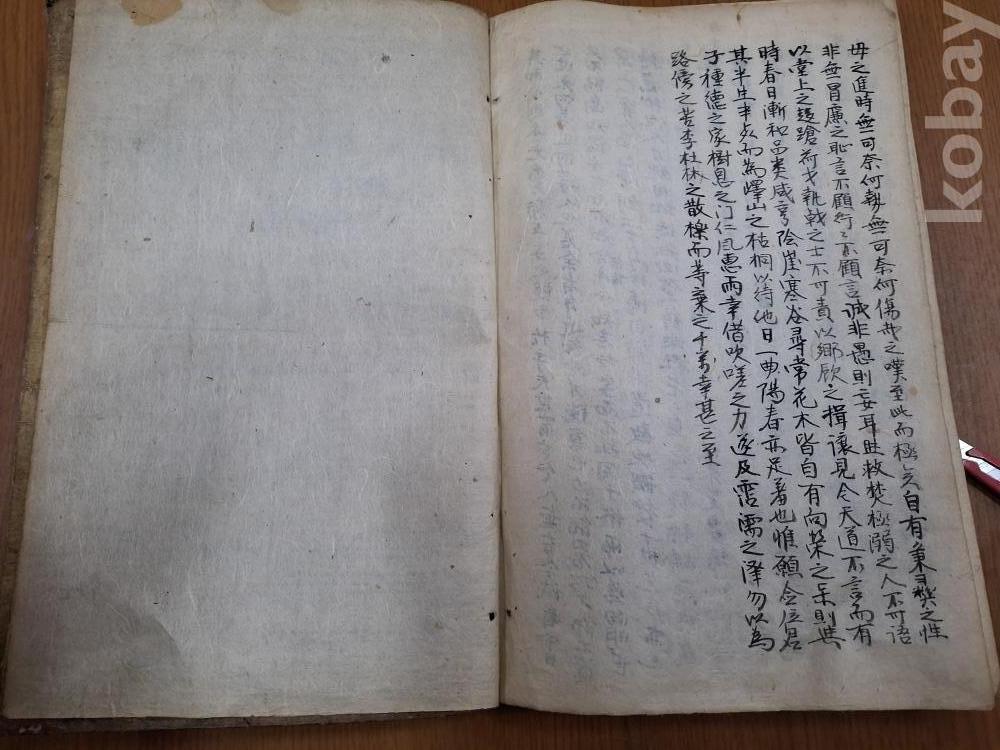 毋之進時無可奈何勢無可奈何傷哉之嘆至此而極矣自有秉彛之性
非無冒廉之恥言不顧行行不顧言誠非愚則妄耳然救焚極溺之人不可語
以堂上之趍蹌荷戈執戟之士不可責以鄕飮之揖讓見今天道不言而有
時春日漸和品类咸亨陰崖寒谷尋常花木皆自有向榮之樂則與
其半生半死而為嶧山之枯桐以待他日一曲陽春亦足者也惟願僉位君
子種德之家樹恩之门仁風惠雨幸借吹噓之力遂及霑濡之澤勿以為
路傍之苦李杜林之散櫟而等棄之千萬幸甚之至
kobay